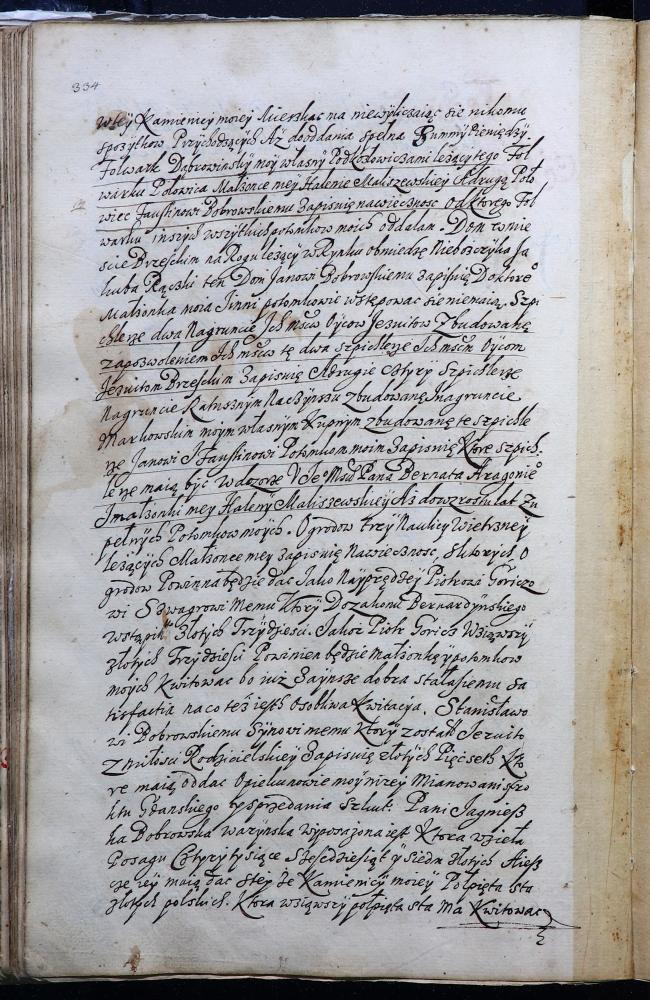 334
wtey Kamienicy moiey Mieszkac na niewyliczaiąc sie nikomu
spożytkow Przychodzących Aż dooddania spełna Summy Pieniędzy.
Folwark Dąbrowinsky moy własny Podkozłowiczami leżący tego Fol
warku Połowica Małżonce mey Halenie Maliszewskiey Adrugą Poło
wicę Faustinowi Bobrowskiemu Zapisuię nawiecznosc od ktorego Fol
warku inszych wszytkich potomkow moich oddalam. Dom w mie
scie Brzeskim na Rogu leżący w Rynku obmiedzę Nieboszczyka Ja
kuba Rączki ten Dom Janowi Bobrowskiemu zapisuię Doktore°
Małżonka moia Jinni potomkowie wstępowac sie niemaią. Szpi
chlerze dwa Nagruncie Ich mscw Oycow Jezuitow Zbudowanę
zapozwoleniem Ich mscw tę dwa szpichlerze Ich mscm Oycom
Jezuitom Brzeskim Zapisuię Adrugie cztyry Szpichlerze
Nagruncie Ratusznym Naczynszu Zbudowanę Inagruncie
Markowskim moim własnym Kupnym zbudowanę te szpichle
rze Janowi I Faustinowi Potomkom moim Zapisuię Ktore szpich-
lerze maią być wdozorze V Je° Msci Pana Bernata Aragonie°
Imałżonki mey Haleny Maliszewskiey Aż dowzrostu lat zu
pełnych Potomkow moych. Ogrodow trzy Naulicy Wietrzney
leżących Małżonce mey zapisuię Nawiecznosc, sktorych o
grodow Powinna będzie dac Jako Nayprędzey Piotrowi Goriczo
wi Szwagrowi Memu ktory Dozakonu Bernardynskiego
wstąpił Złotych Trzydziesci. Jakoż Piotr Goricz Wziąwszy
złotych Trzydziesci Powinien będzie małżonkę y potomkow
moych Kwitowac bo iuż Zaynsze dobra stałasiemu Sa
tisfactia naco też iest Osobliwa Kwitacyia. Stanisławo
wi Bobrowskiemu Synowi memu ktory został Jezuito
Zmiłosci Rodzicielskiey Zapisuię złotych Pięcseth kto
re maią oddac Opiekunowie moy niżey Mianowani sfro
ktu Gdanskiego y sprzedania szkut. Pani Jagniesz
ka Bobrowska warzynska wyposażona iest Ktora wzieła
Posagu Cztyry tysiące Szescdziesiąt y siedm złotych Kiesz
cze iey maią dac stey że Kamienicy moiey Połpięta sta
złotych polskich. Ktora wziąwszy połpięta sta Ma Kwitowac